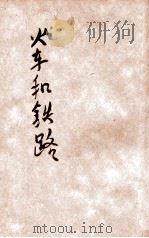 火车和铁路
mtoou.info